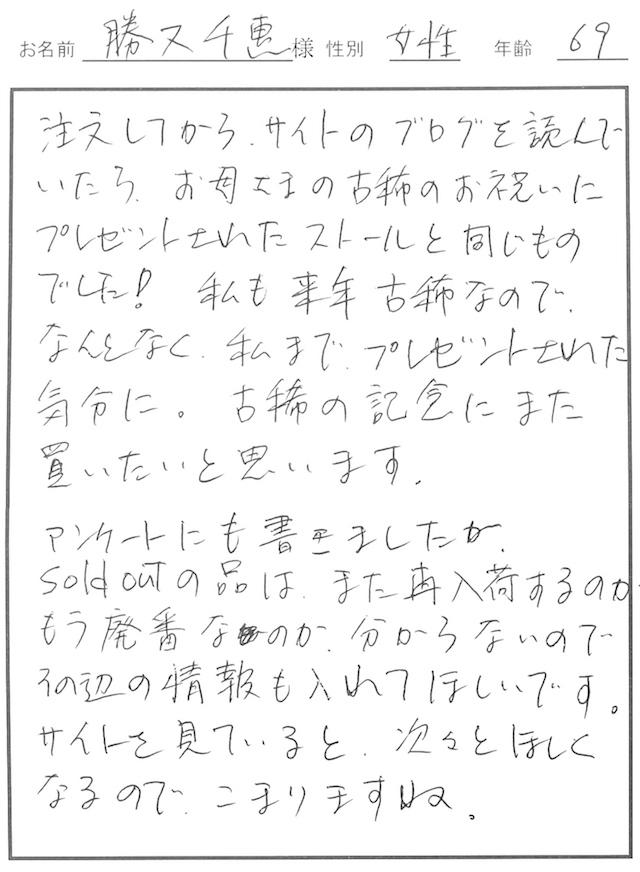 お名前 勝又千恵様 性別 女性 年齢 69
注文してから、サイトのブログを読んで
いたら、お母さまの古稀のお祝いに
プレゼントされたストールと同じもの
でした! 私も来年古稀なので、
なんとなく、私まで、プレゼントされた
気分に。古稀の記念にまた
買いたいと思います。
アンケートにも書きましたが、
Sold outの品は、また再入荷するのか
もう廃番なのか、分からないので
その辺の情報も入れてほしいです。
サイトを見ていると、次々とほしく
なるので、こまりますね。